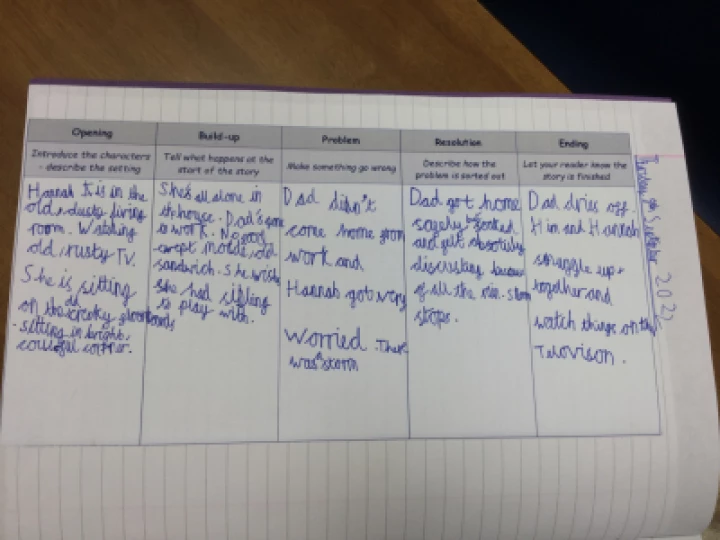 Opening
Introduce the characters
- describe the setting
Hannah is in the
old, dusty living
room. Watching
old, rusty TV.
She is sitting
on the old creeky floorboards
- sitting in bright,
colourful corner.
Build-up
Tell what happens at the
start of the story
She's all alone in
the house. Dad's gone
to work. No food
exept mold, old
sandwich. She wishes
she had sibling
to play with.
Problem
Make something go wrong
Dad didn't
come home from
work and
Hannah got very
Worried. There
was a storm
Resolution
Describe how the
problem is sorted out
Dad got home
safely but soaked
and felt absolutley
discusting because
of all the rain. Storm
stops.
Ending
Let your reader know the
story is finished
Dad dries off.
Him and Hannah
snuggle up
together and
watch things on the
Telovison.
September 2022